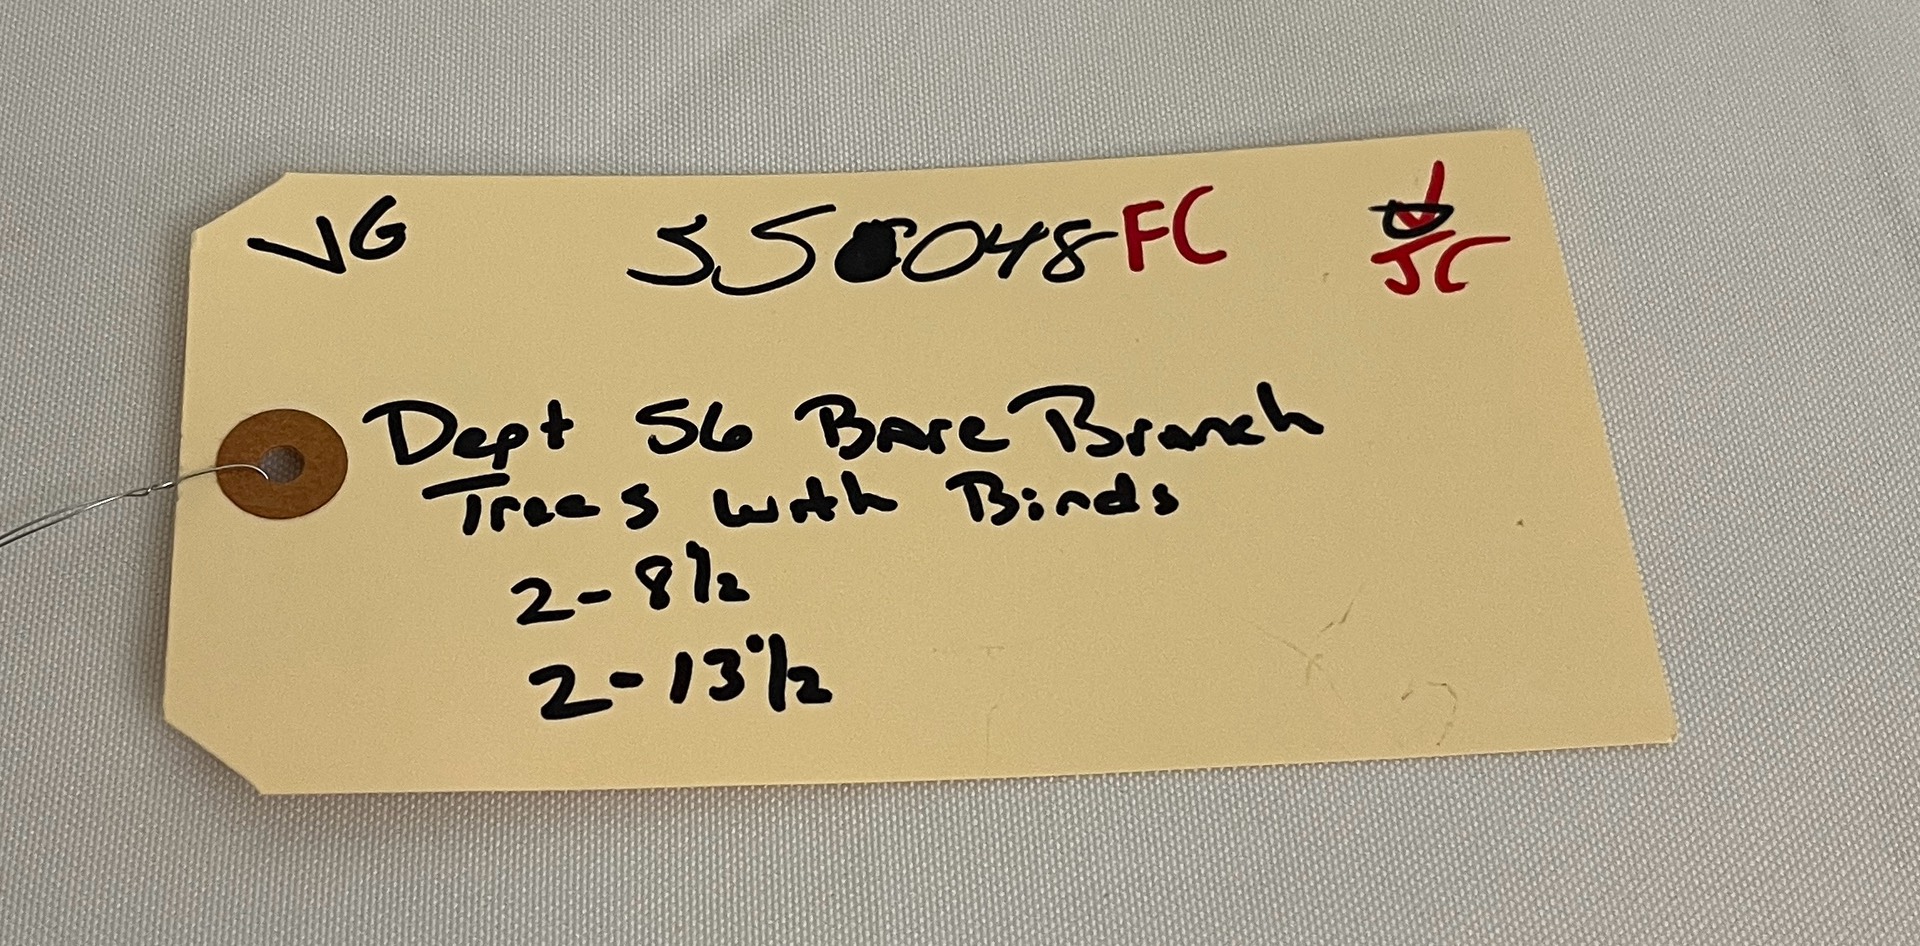 VG 55 048 FC JC
Dept 56 Bare Branch
Trees with Birds
2-8 1/2
2-13 1/2